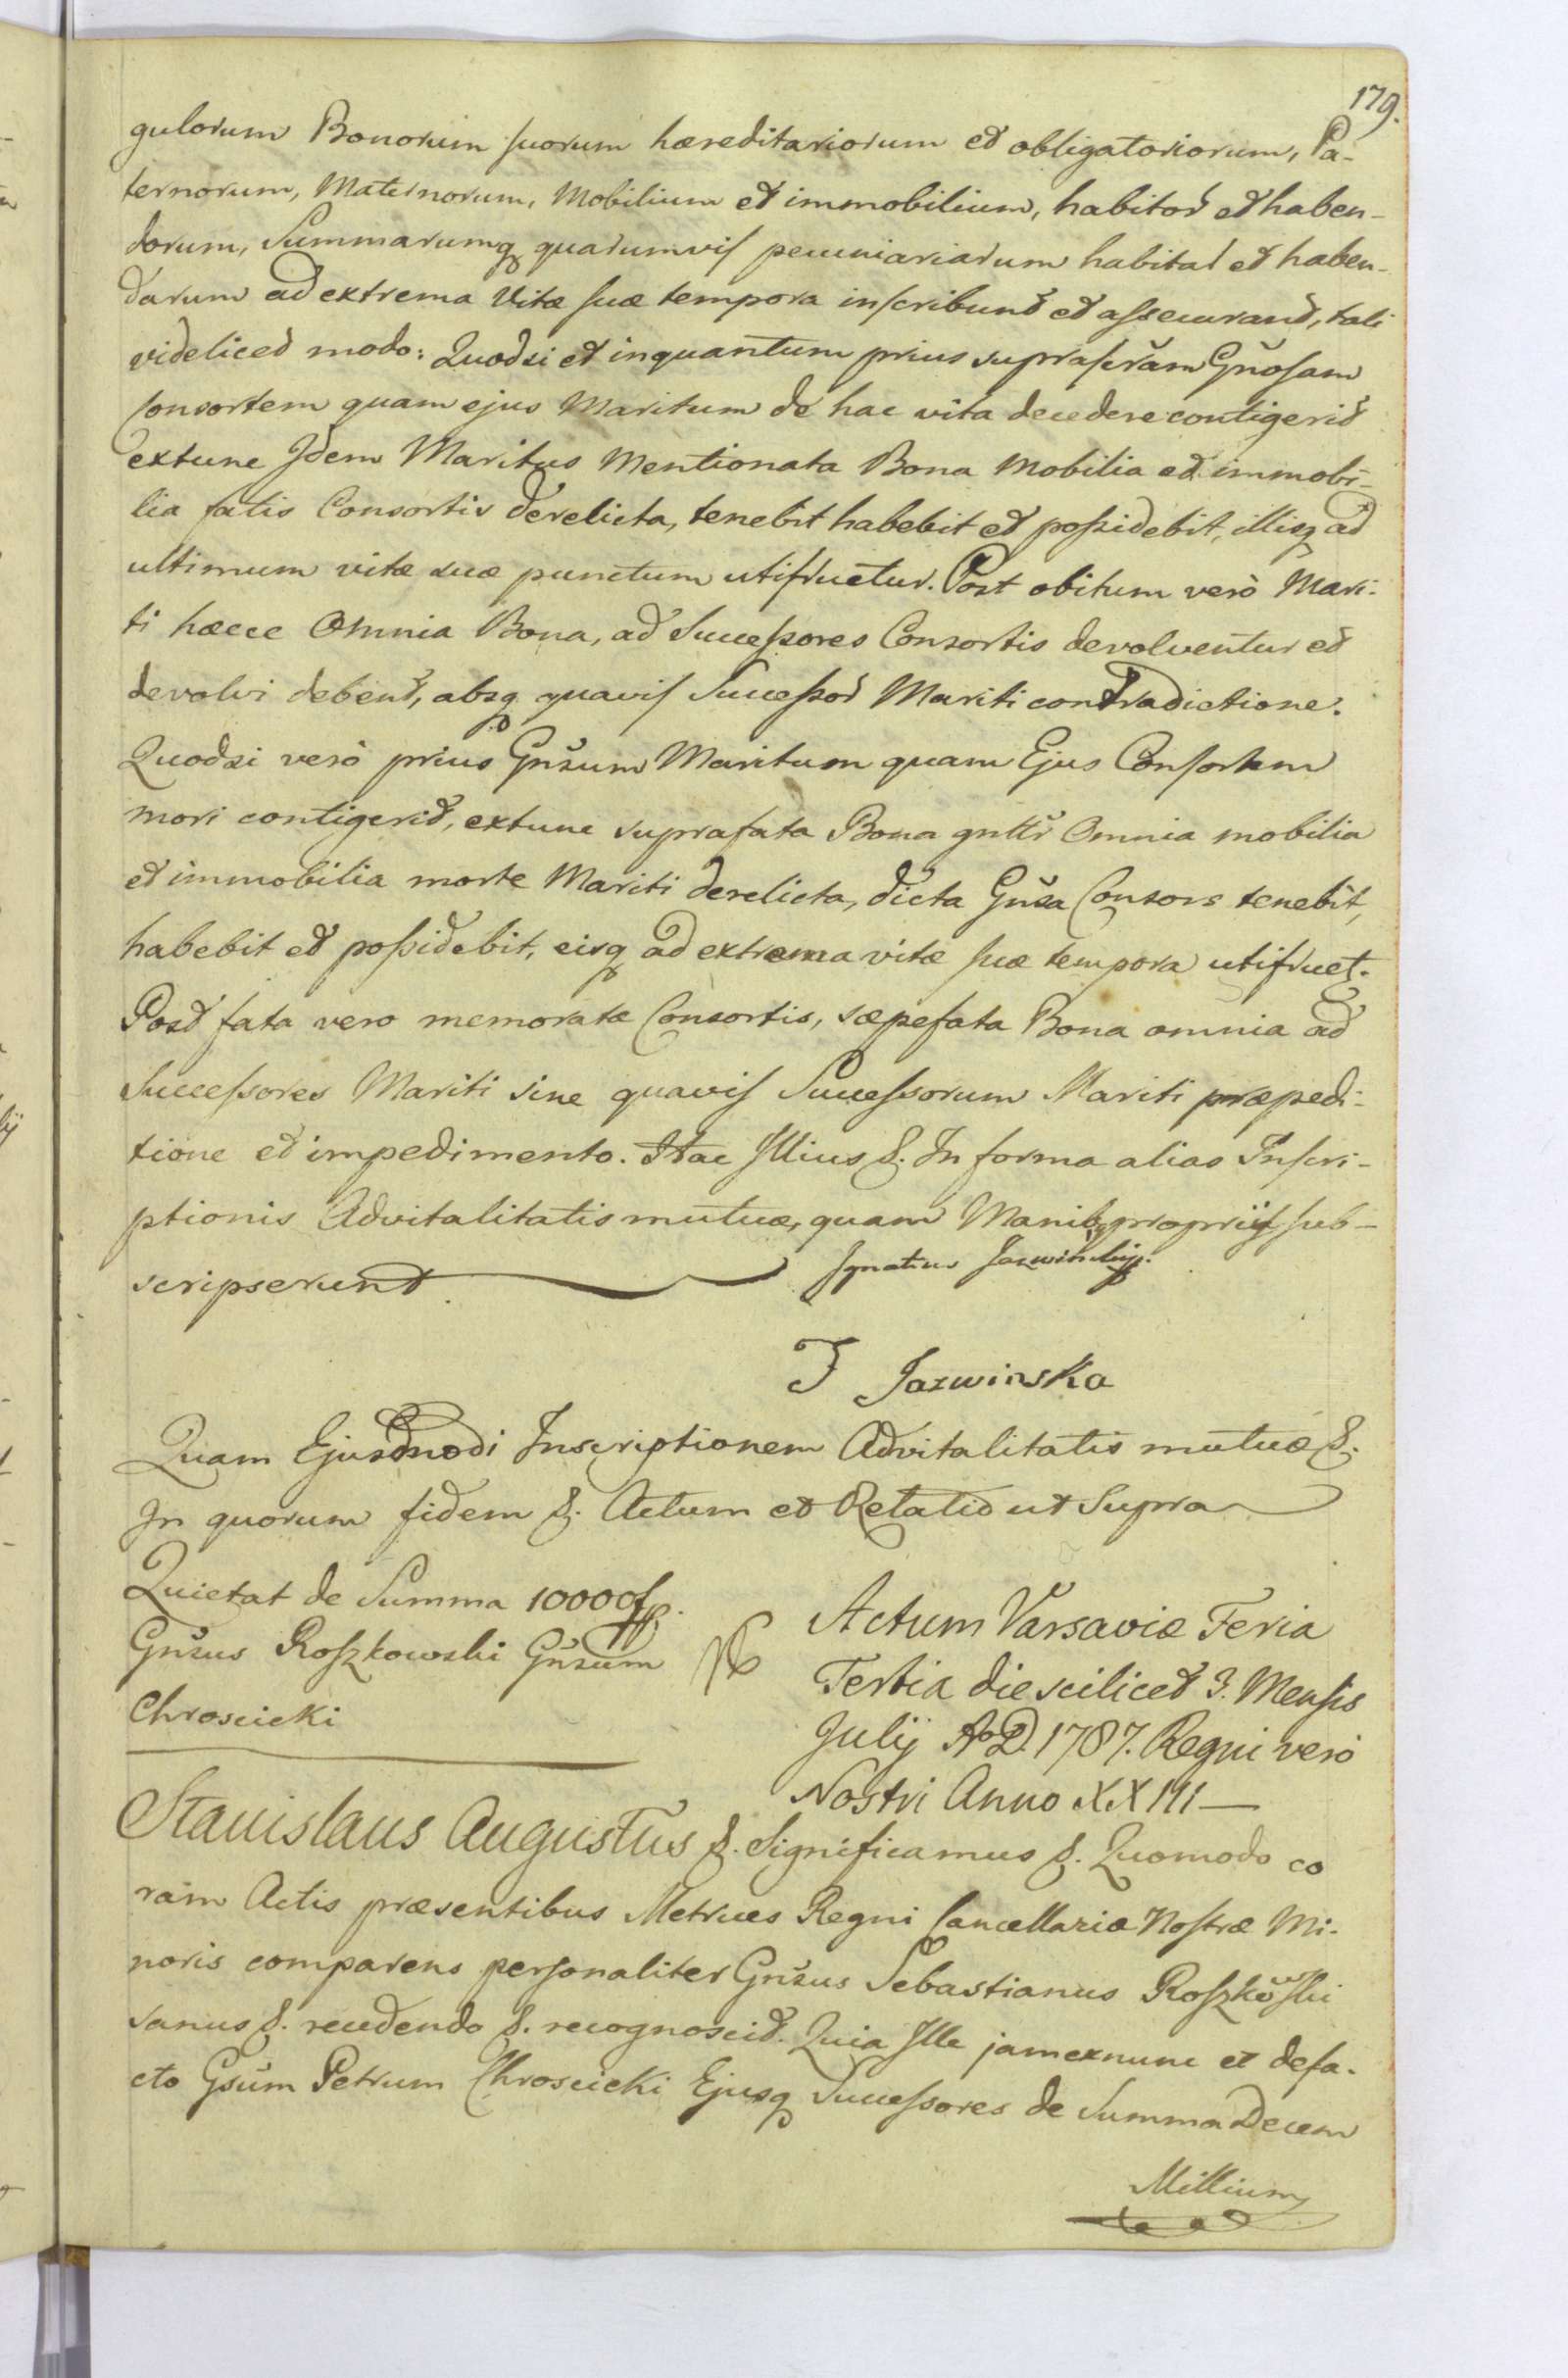 179.
gulorum Bonorum suorum hæreditariorum et obligatoriorum, Pa-
ternorum, Maternorum, Mobilium et immobilium, habitor et haben-
dorum, Summarumq quarumvis pecuniariarum habitar et haben-
darum ad extrema Vitæ suæ tempora inscribunt et assecurant, tali
videlicet modo: Quodsi et inquantum prius suprascr̃am Gñosam
Consortem quam ejus Maritum de hac vita decedere contigerit
extunc Idem Maritus Mentionata Bona Mobilia et immobi-
lia fatis Consortis derelicta, tenebit habebit et possidebit, illisq ad
ultimum vitæ suæ punctum utifruetur. Post obitum verò Mari-
ti hæcce Omnia Bona, ad Successores Consortis devolventur et
devolvi debent, absq quavis Successor Mariti contradictione.
Quodsi verò prius Gñsum Maritum quam Ejus Consortem
mori contigerit, extunc suprafata Bona gnltr Omnia mobilia
et immobilia morte Mariti derelicta, dicta Gñsa Consors tenebit,
habebit et possidebit, eisq ad extrema vitæ suæ tempora utifruet.
Post fata vero memoratæ Consortis, sæpefata Bona omnia ad
Successores Mariti sine quavis Successorum Mariti præpedi-
tione et impedimento. Hac Illius &. In forma alias Inscri-
ptionis Advitalitatis mutuæ, quam Manib proprijs sub-
scripserunt Ignatius Jazwinskij.
J Jazwinska
Quam Ejusdmodi Inscriptionem Advitalitatis mutuæ &.
In quorum fidem &. Actum et Relatio ut Supra
Quietat de Summa 10000 fp.
Gñsus Roszkowski Gñsum
Chroscicki
Actum Varsaviæ Feria
Tertia die scilicet 3. Mensis
Julij A D. 1787. Regni verò
Nostri Anno XXIII
Stanislaus Augustus &. Significamus &. Quomodo co
ram Actis præsentibus Metrices Regni Cancellariæ Nostræ Mi-
noris comparens personaliter Gñsus Sebastianus Roszkowski
sanus &. recedendo &. recognoscit. Quia Ille jam exnunc et defa-
cto Gsum Petrum Chroscicki Ejusq Successores de Summa Decem
Millium